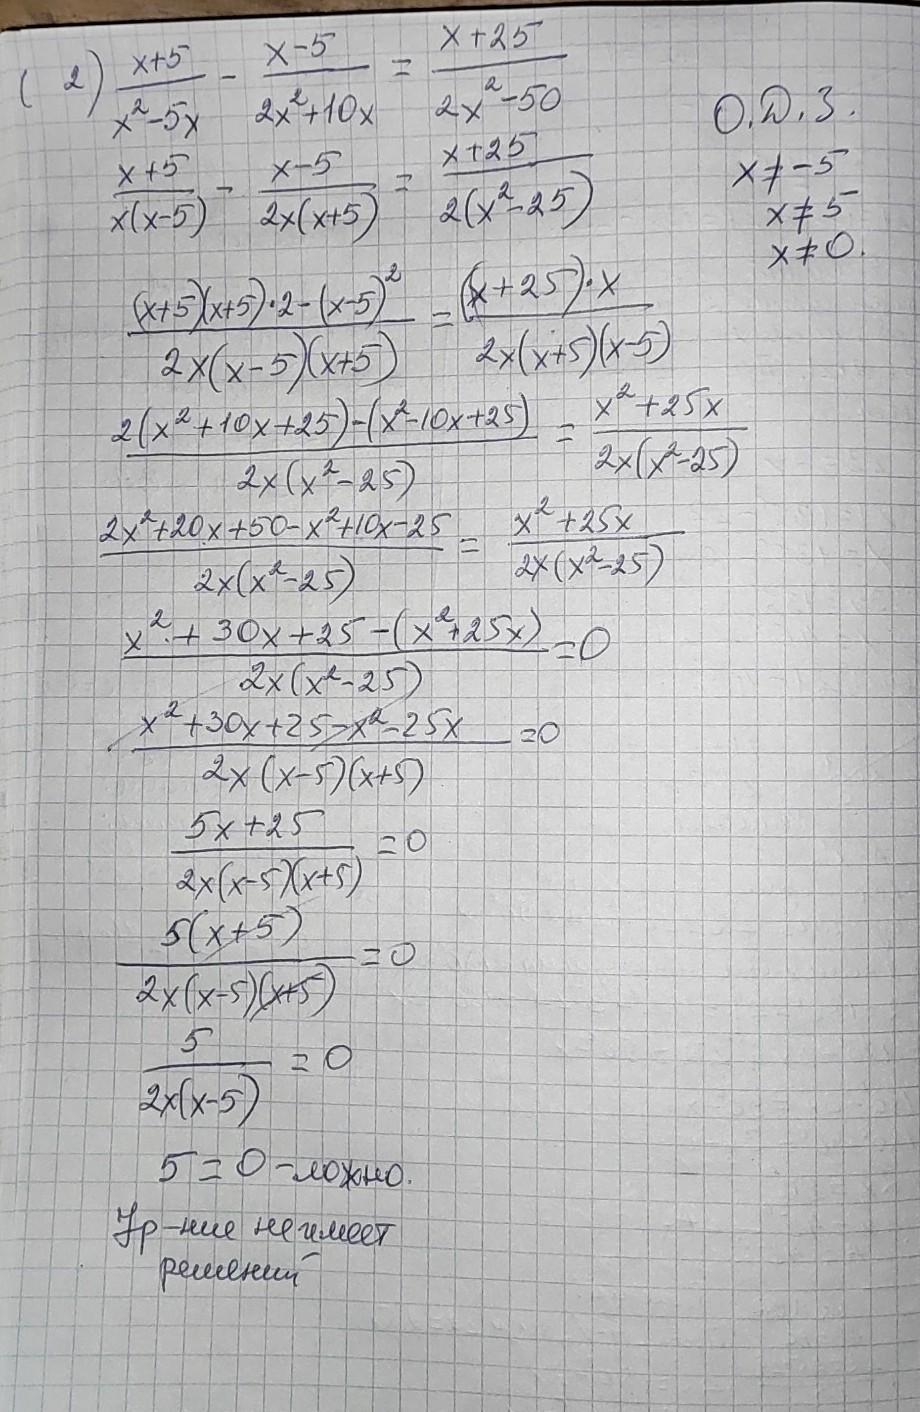 2) (x+5)/(x²-5x) - (x-5)/(2x²+10x) = (x+25)/(2x²-50)
О.Д.З.
(x+5)/(x(x-5)) - (x-5)/(2x(x+5)) = (x+25)/(2(x²-25))
x≠-5
x≠5
x≠0.
((x+5)(x+5)·2-(x-5)²)/(2x(x-5)(x+5)) = ((x+25)·x)/(2x(x+5)(x-5))
(2(x²+10x+25)-(x²-10x+25))/(2x(x²-25)) = (x²+25x)/(2x(x²-25))
(2x²+20x+50-x²+10x-25)/(2x(x²-25)) = (x²+25x)/(2x(x²-25))
(x²+30x+25-(x²+25x))/(2x(x²-25)) = 0
(x²+30x+25-x²-25x)/(2x(x-5)(x+5)) = 0
(5x+25)/(2x(x-5)(x+5)) = 0
(5(x+5))/(2x(x-5)(x+5)) = 0
5/(2x(x-5)) = 0
5=0 - ложно.
Ур-ние не имеет
решений